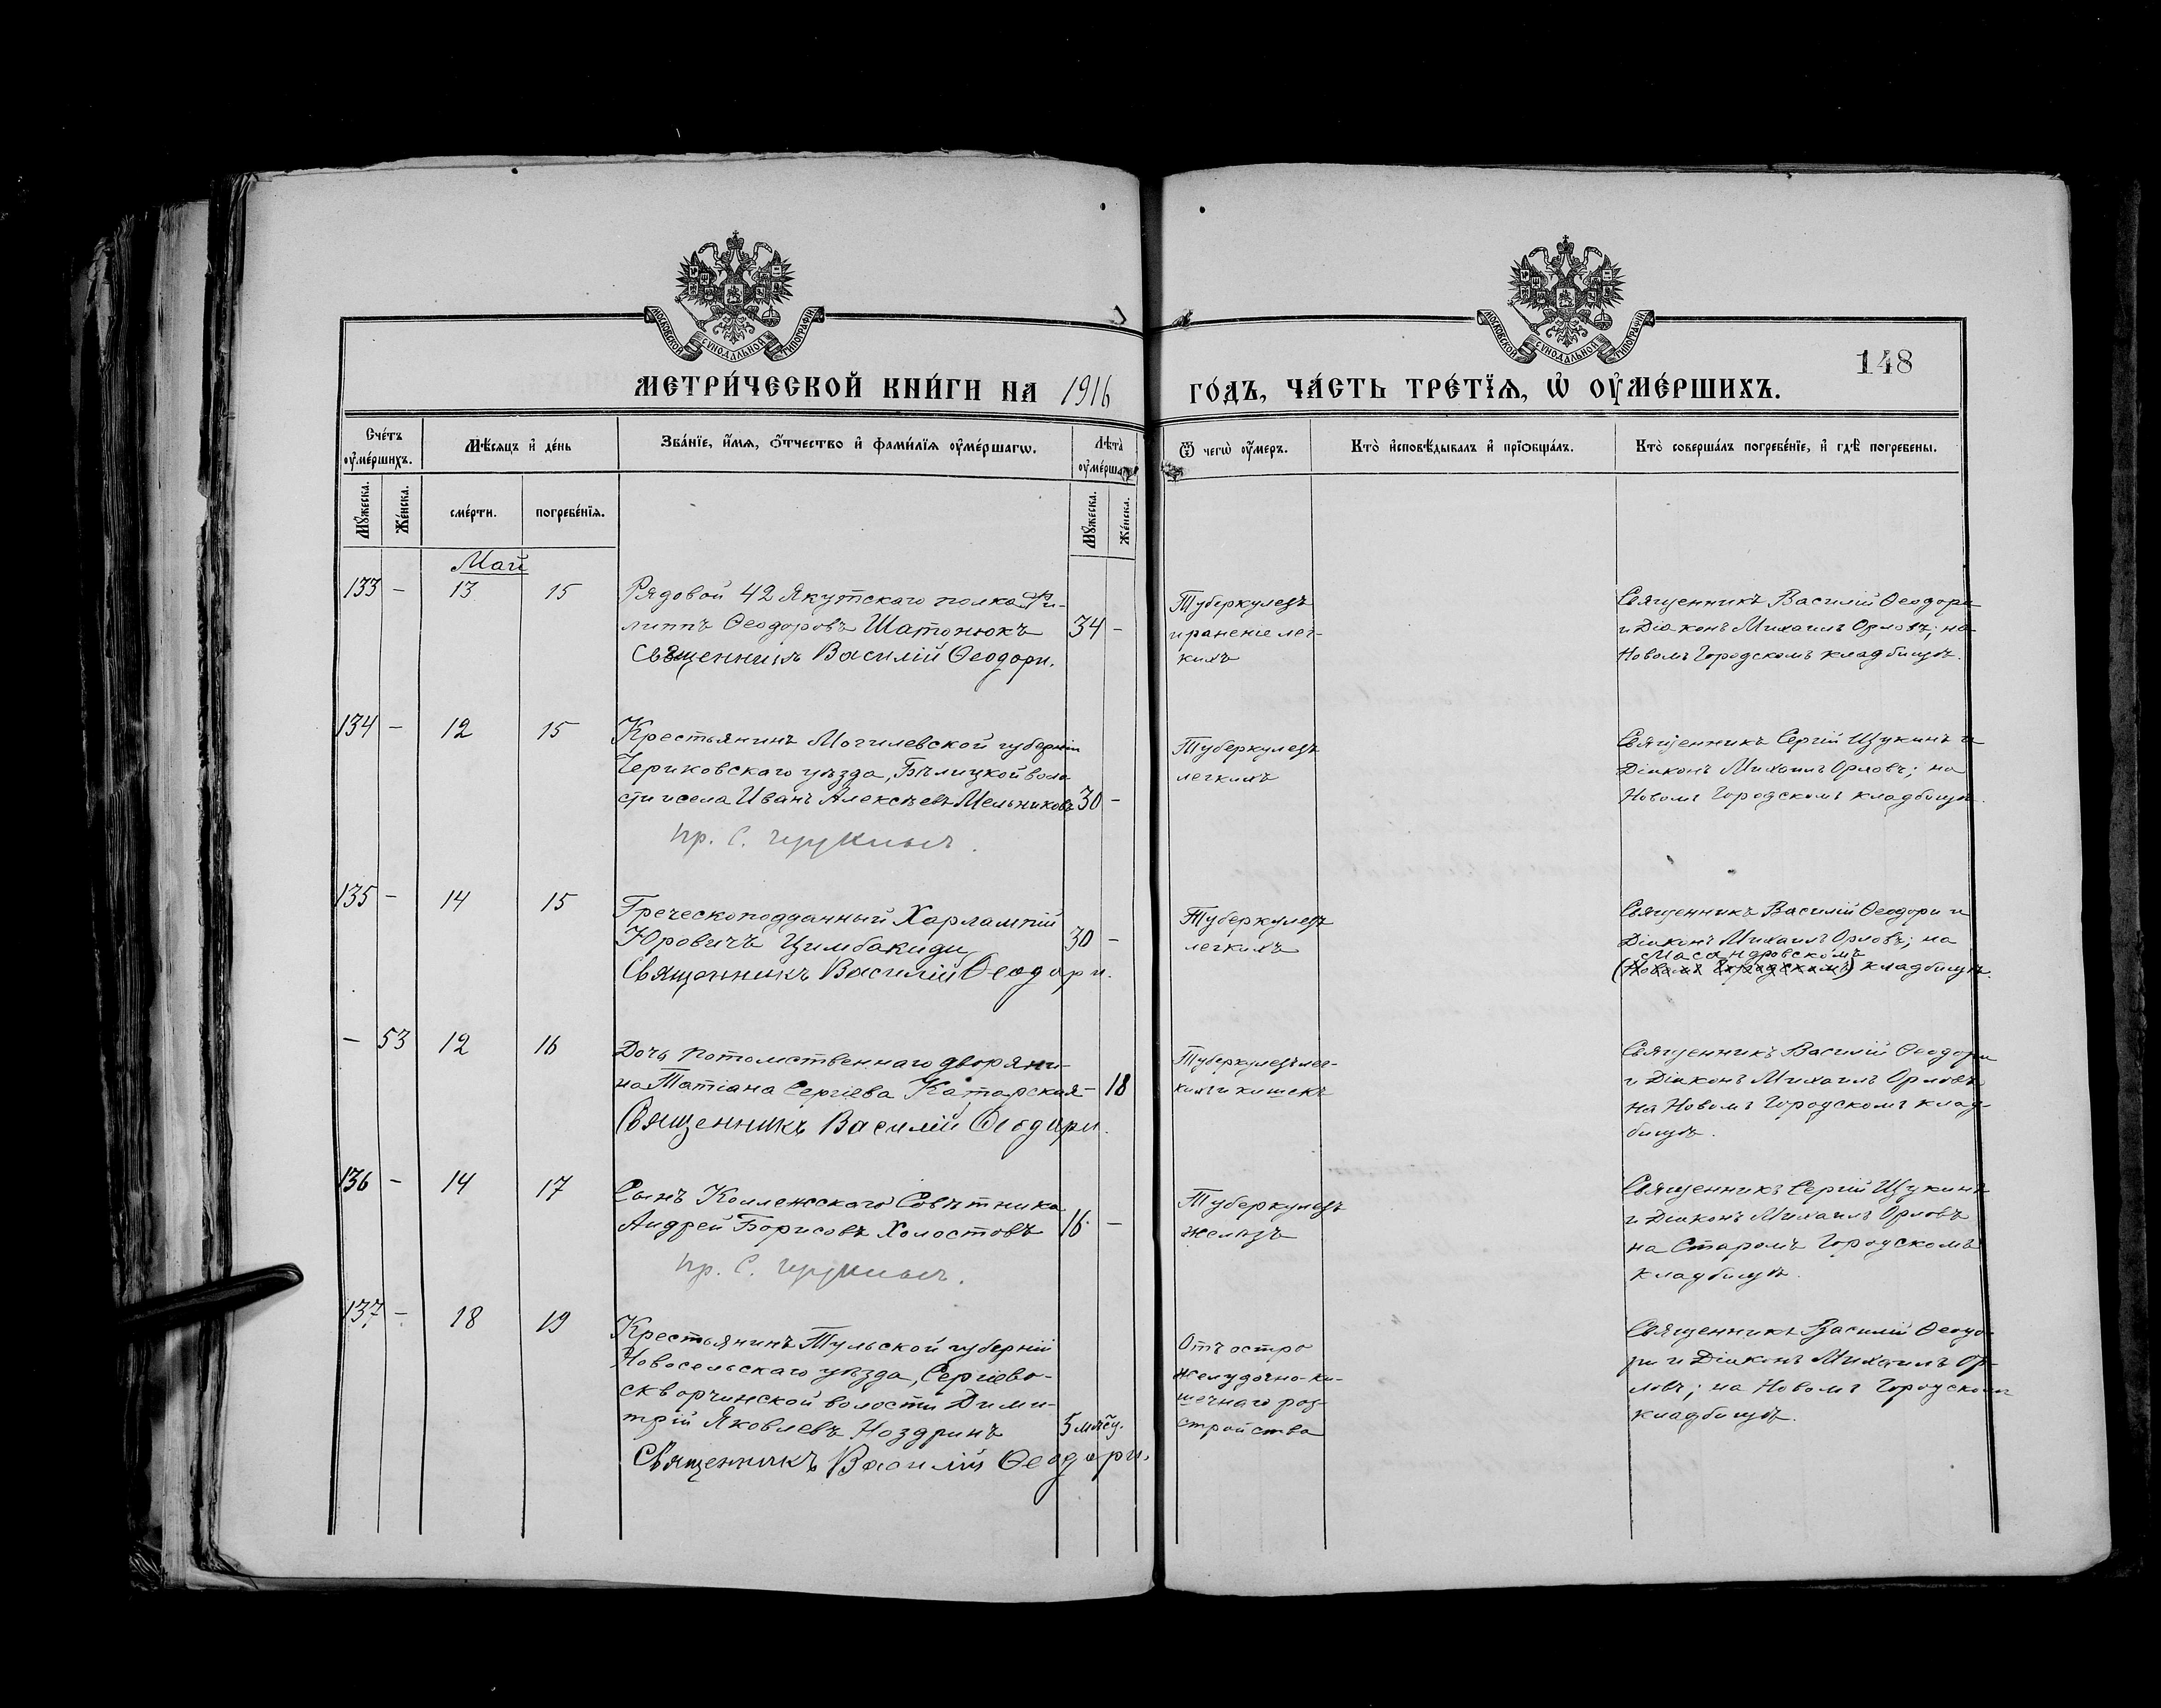 МОСКОВСКОЙ СУНОДАЛЬНОЙ ТИПОГРАФІИ
МОСКОВСКОЙ СУНОДАЛЬНОЙ ТИПОГРАФІИ
148
МЕТРИ́ЧЕСКОЙ КНИ́ГИ НА 1916 ГО́ДЪ, ЧА́СТЬ ТРЕ́ТЇѦ, Ѡ҆ ОУ҆МЕ́РШИХЪ.
Сче́тъ оу҆ме́ршихъ.
Мѣ́сѧцъ и҆ де́нь
Зва́нїе, и҆́мѧ, ѻ҆́тчество и҆ фами́лїѧ оу҆ме́ршагѡ.
Лѣ́та оу҆ме́ршагѡ
Ѿ чегѡ̀ оу҆́меръ.
Кто̀ и҆сповѣ́дывалъ и҆ прїѻбща́лъ.
Кто̀ соверша́лъ погребе́нїе, и҆ гдѣ̀ погребены.
Мꙋ́жеска.
Же́нска.
сме́рти.
погребе́нїѧ.
Мꙋ́жеска.
Же́нска.
Май
133 - 13 15
Рядовой 42 Якутскаго полка Фи-
липпъ Ѳеодоровъ Шатонюкъ 34 -
Священникъ Василій Ѳеодори.
Туберкулезъ
и раненіе лег-
кихъ
Священникъ Василій Ѳеодори
и Діаконъ Михаилъ Орловъ; на
Новомъ Городскомъ кладбищѣ.
134 - 12 15
Крестьянинъ Могилевской губерніи
Чериковскаго уѣзда, Бѣлицкой воло
сти и села Иванъ Алексѣевъ Мельниковъ 30 -
пр. С. Щукинъ.
Туберкулезъ
легкихъ
Священникъ Сергій Щукинъ и
Діаконъ Михаилъ Орловъ; на
Новомъ Городскомъ кладбищѣ.
135 - 14 15
Греческоподданный Харлампій
Юровичъ Цимбакиди 30 -
Священникъ Василій Ѳеодори.
Туберкулезъ
легкихъ
Священникъ Василій Ѳеодори и
Діаконъ Михаилъ Орловъ; на
Масандровскомъ
(Новомъ Городскомъ) кладбищѣ.
- 53 12 16
Дочь потомственнаго дворяни-
на Татіана Сергіева Катарская - 18
Священникъ Василій Ѳеодори.
Туберкулезъ лег-
кихъ и кишекъ
Священникъ Василій Ѳеодори
и Діаконъ Михаилъ Орловъ
на Новомъ Городскомъ клад-
бищѣ.
136 - 14 17
Сынъ Коллежскаго Совѣтника
Андрей Борисовъ Холостовъ 16 -
пр. С. Щукинъ.
Туберкулезъ
железъ
Священникъ Сергій Щукинъ
и Діаконъ Михаилъ Орловъ
на Старомъ Городскомъ
кладбищѣ.
137 - 18 19
Крестьянинъ Тульской губерніи
Новосельскаго уѣзда, Сергіево-
скворчинской волости Дими-
трій Яковлевъ Ноздринъ 5 мѣсц.
Священникъ Василій Ѳеодори.
Отъ остро
желудочно-ки-
шечнаго раз-
стройства
Священникъ Василій Ѳеодо-
ри и Діаконъ Михаилъ Ор-
ловъ; на Новомъ Городскомъ
кладбищѣ.